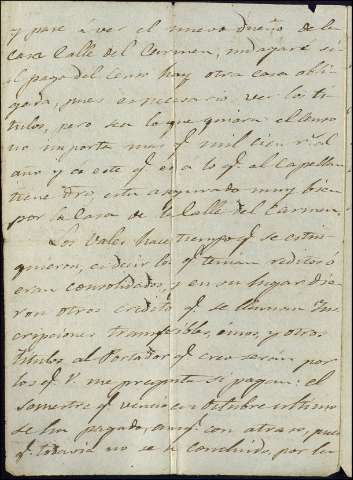 y pase á ver el nuevo dueño de la
casa Calle del Carmen, indagaré si
al pago del censo hay otra casa obli
gada, pues es necesario ver los tí
tulos, pero sea lo que quiera el censo
no importa mas q.e mil cien r.s al
año y a este q.e es á lo q.e el Capellan
tiene dro, esta asegurado muy bien
por la Casa de la Calle del Carmen.
Los Vales hace tiempo q.e se estin
guieron, es decir los q.e tenian reditos ó
eran consolidados, y en su lugar die
ron otros creditos q.e se llaman Ins
cripciones transferibles, unos, y otros
titulos al Portador q.e creo serán por
los q.e V. me pregunta si pagan: el
semestre q.e vencio en Octubre ultimo
se ha pagado, aunq.e con atraso, pues
q.e todavia no se a concluido, por lo